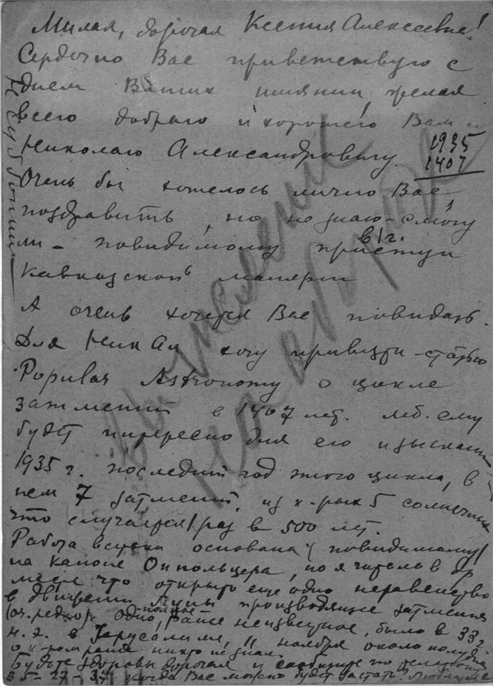 Милая, дорогая Ксения Алексеевна!
Сердечно Вас приветствую с
днем Ваших имянин, желая
всего доброго и хорошего Вам и
Николаю Александровичу.
1935
1407
Очень бы хотелось лично Вас
поздравить, но не знаю – смогу
ли – повидимому приступ
Кавказской малярии
А очень хочется Вас повидать.
Для Ник Ал хочу привезти статью
Popular Astronomy о цикле
затмений в 1407 лет. м.б. ему
будет интересно для его изыскани
1935 г. последний год этого цикла, в
нем 7 затмений, из к-рых 5 солнечных
что случается 1 раз в 500 лет.
Работа всецело основана (повидимому)
на каноне Оппольцера, но я читал в
что открыто еще одно неравенство
в движении Луны производящее затмения
(оч. редко). Одно, ранее неизвестное, было в 33 г.
н. э. в Иерусалиме, ноября около полудня
о к-ром ранее никто не знал.
Будьте здоровы дорогая и
5-27-37 когда Вас можно будет застать?
Вычисление
на обороте